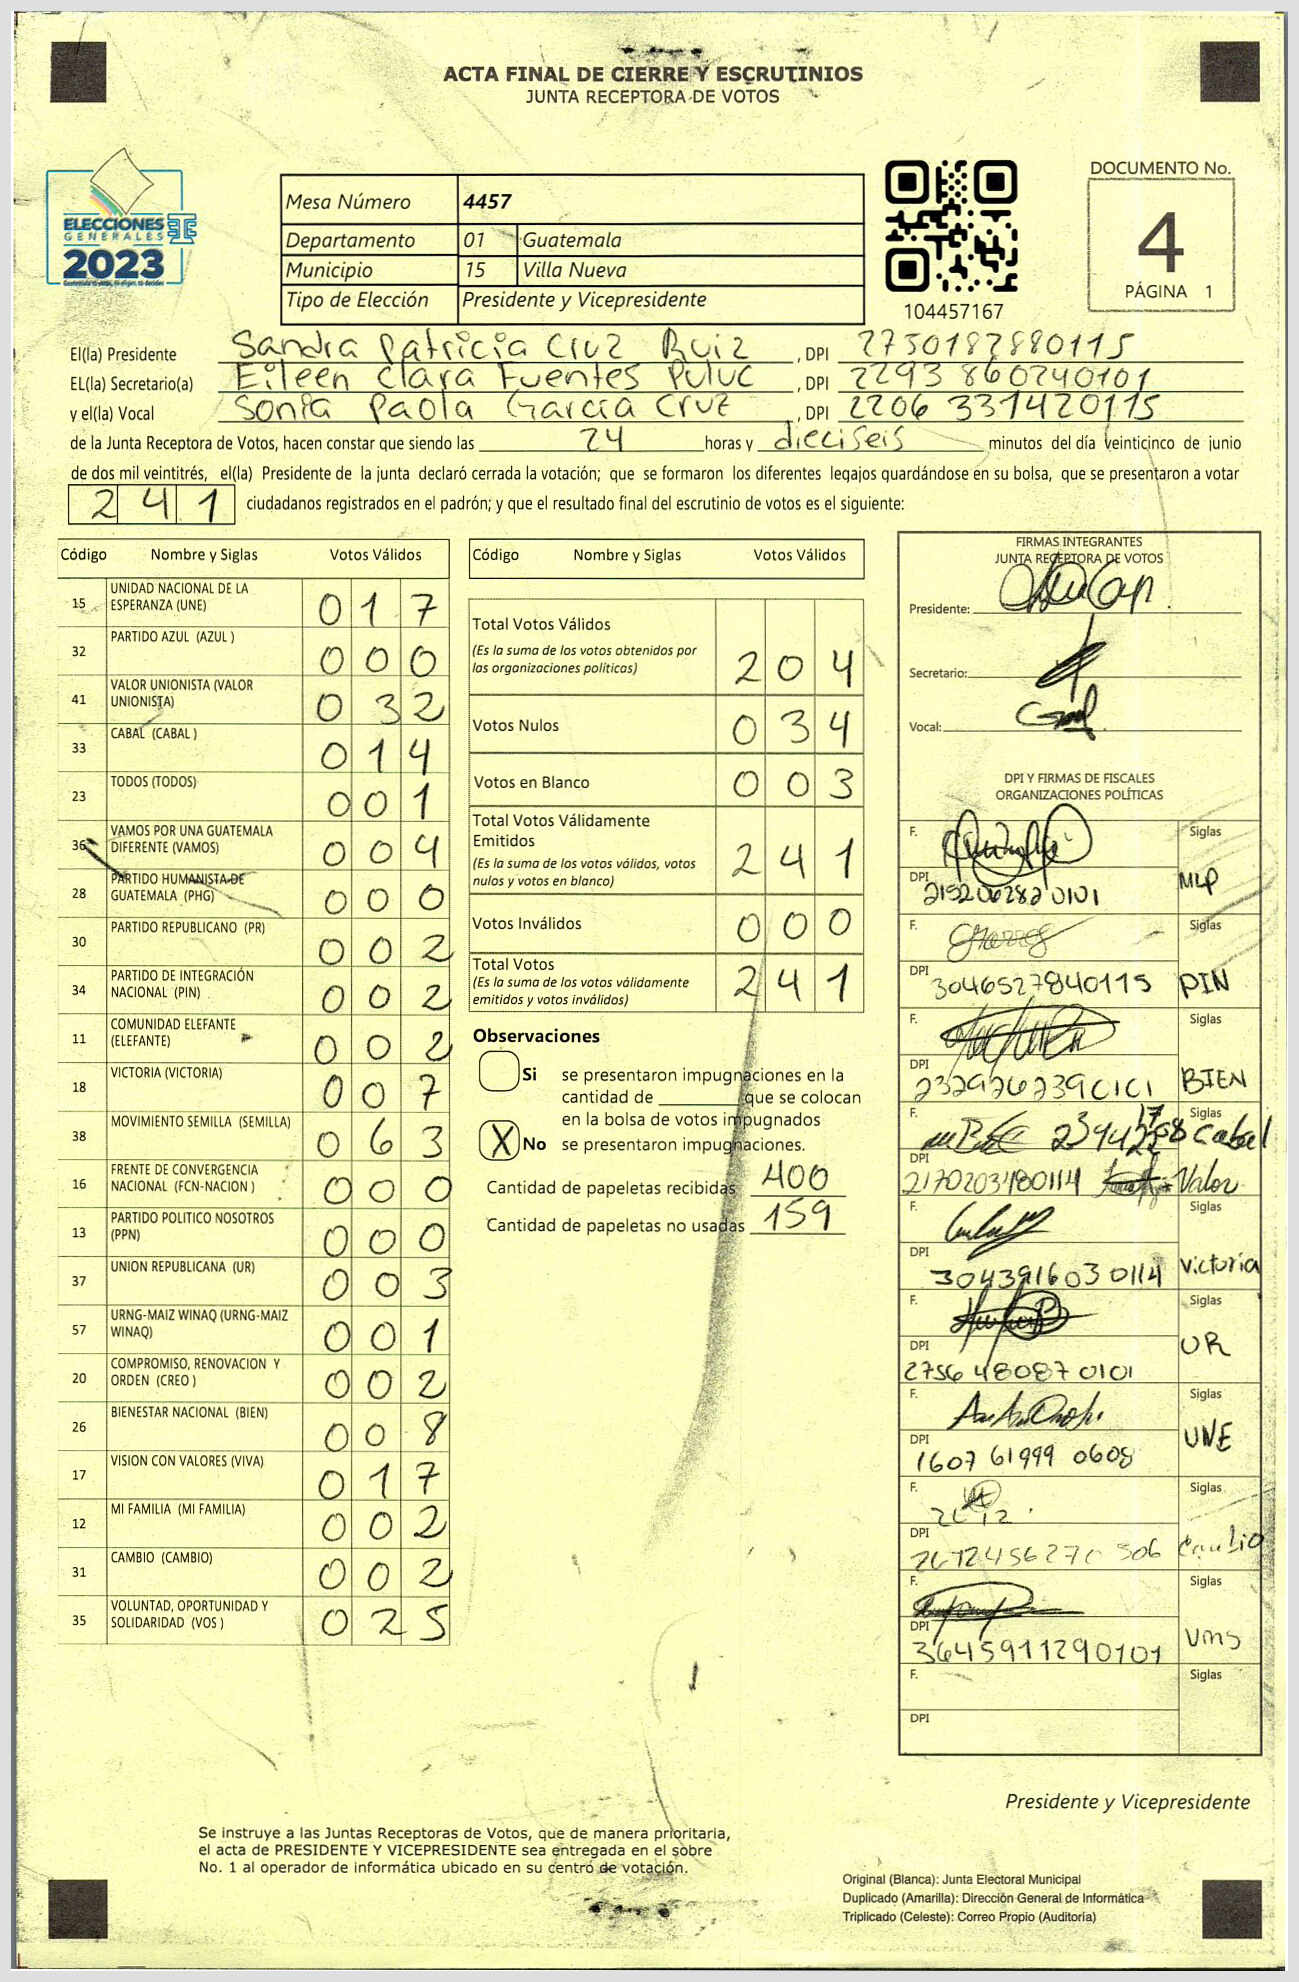 ACTA FINAL DE CIERRE Y ESCRUTINIOS
JUNTA RECEPTORA DE VOTOS
ELECCIONES
GENERALES
2023
Mesa Número 4457
Departamento 01 Guatemala
Municipio 15 Villa Nueva
Tipo de Elección Presidente y Vicepresidente
104457167
DOCUMENTO No.
4
PÁGINA 1
El(la) Presidente Sandra Patricia Cruz Ruiz, DPI 2750187880115
EL(la) Secretario(a) Eileen Clara Fuentes Puluc, DPI 2293 860240101
y el(la) Vocal Sonia Paola Garcia Cruz, DPI 2206 331420115
de la Junta Receptora de Votos, hacen constar que siendo las 24 horas y dieciseis minutos del día veinticinco de junio
de dos mil veintitrés, el(la) Presidente de la junta declaró cerrada la votación; que se formaron los diferentes legajos quardándose en su bolsa, que se presentaron a votar
241 ciudadanos registrados en el padrón; y que el resultado final del escrutinio de votos es el siguiente:
Código Nombre y Siglas Votos Válidos
15 UNIDAD NACIONAL DE LA ESPERANZA (UNE) 017
32 PARTIDO AZUL (AZUL ) 000
41 VALOR UNIONISTA (VALOR UNIONISTA) 032
33 CABAL (CABAL ) 014
23 TODOS (TODOS) 001
36 VAMOS POR UNA GUATEMALA DIFERENTE (VAMOS) 004
28 PARTIDO HUMANISTA DE GUATEMALA (PHG) 000
30 PARTIDO REPUBLICANO (PR) 002
34 PARTIDO DE INTEGRACIÓN NACIONAL (PIN) 002
11 COMUNIDAD ELEFANTE (ELEFANTE) 002
18 VICTORIA (VICTORIA) 007
38 MOVIMIENTO SEMILLA (SEMILLA) 063
16 FRENTE DE CONVERGENCIA NACIONAL (FCN-NACION ) 000
13 PARTIDO POLITICO NOSOTROS (PPN) 000
37 UNION REPUBLICANA (UR) 003
57 URNG-MAIZ WINAQ (URNG-MAIZ WINAQ) 001
20 COMPROMISO, RENOVACION Y ORDEN (CREO ) 002
26 BIENESTAR NACIONAL (BIEN) 008
17 VISION CON VALORES (VIVA) 017
12 MI FAMILIA (MI FAMILIA) 002
31 CAMBIO (CAMBIO) 002
35 VOLUNTAD, OPORTUNIDAD Y SOLIDARIDAD (VOS ) 025
Código Nombre y Siglas Votos Válidos
Total Votos Válidos 204
(Es la suma de los votos obtenidos por
las organizaciones políticas)
Votos Nulos 034
Votos en Blanco 003
Total Votos Válidamente
Emitidos 241
(Es la suma de los votos válidos, votos
nulos y votos en blanco)
Votos Inválidos 000
Total Votos 241
(Es la suma de los votos válidamente
emitidos y votos inválidos)
Observaciones
Si se presentaron impugnaciones en la
cantidad de ________ que se colocan
en la bolsa de votos impugnados
X No se presentaron impugnaciones.
Cantidad de papeletas recibidas 400
Cantidad de papeletas no usadas 159
FIRMAS INTEGRANTES
JUNTA RECEPTORA DE VOTOS
Presidente:
Secretario:
Vocal:
DPI Y FIRMAS DE FISCALES
ORGANIZACIONES POLÍTICAS
F. Siglas
DPI 215206282 0101 MLP
F. Siglas
DPI 3046527840115 PIN
F. Siglas
DPI 2329262390101 BIEN
F. Siglas
Cabal
DPI 2170203480114 Valor
F. Siglas
DPI 3043916030114 Victoria
F. Siglas
DPI 2756 48087 0101 UR
F. Siglas
DPI 1607 61999 0608 UNE
F. Siglas
DPI Cambio
F. Siglas
DPI 3645911290101
F. Siglas
DPI
Presidente y Vicepresidente
Se instruye a las Juntas Receptoras de Votos, que de manera prioritaria,
el acta de PRESIDENTE Y VICEPRESIDENTE sea entregada en el sobre
No. 1 al operador de informática ubicado en su centro de votación.
Original (Blanca): Junta Electoral Municipal
Duplicado (Amarilla): Dirección General de Informática
Triplicado (Celeste): Correo Propio (Auditoría)